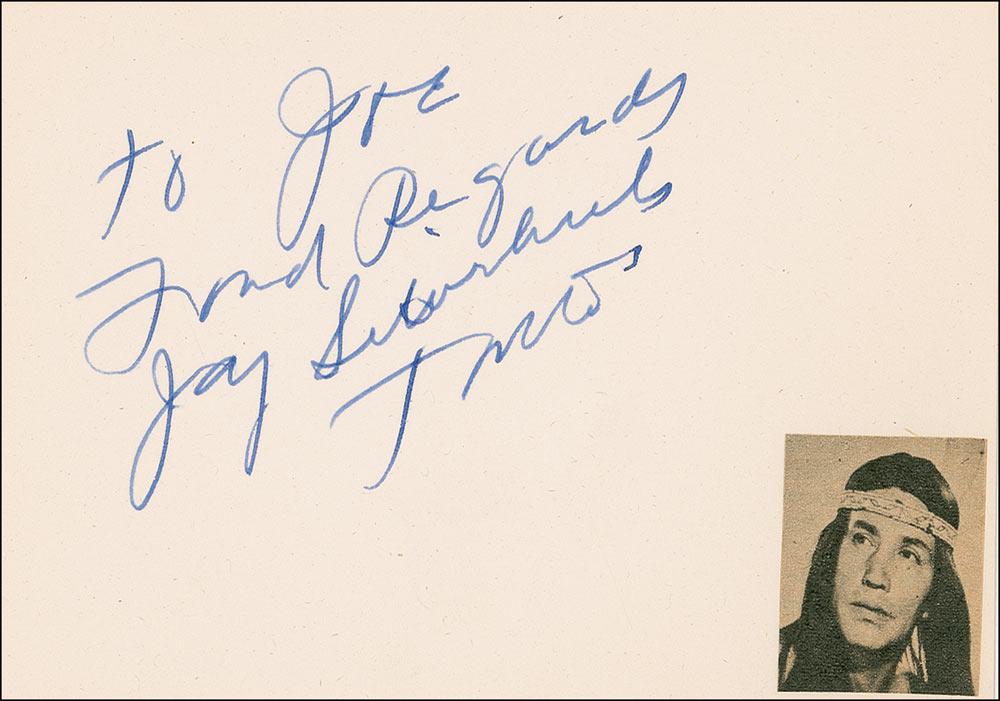 To Joe
Fond Regards
Jay Silverheels
Tonto